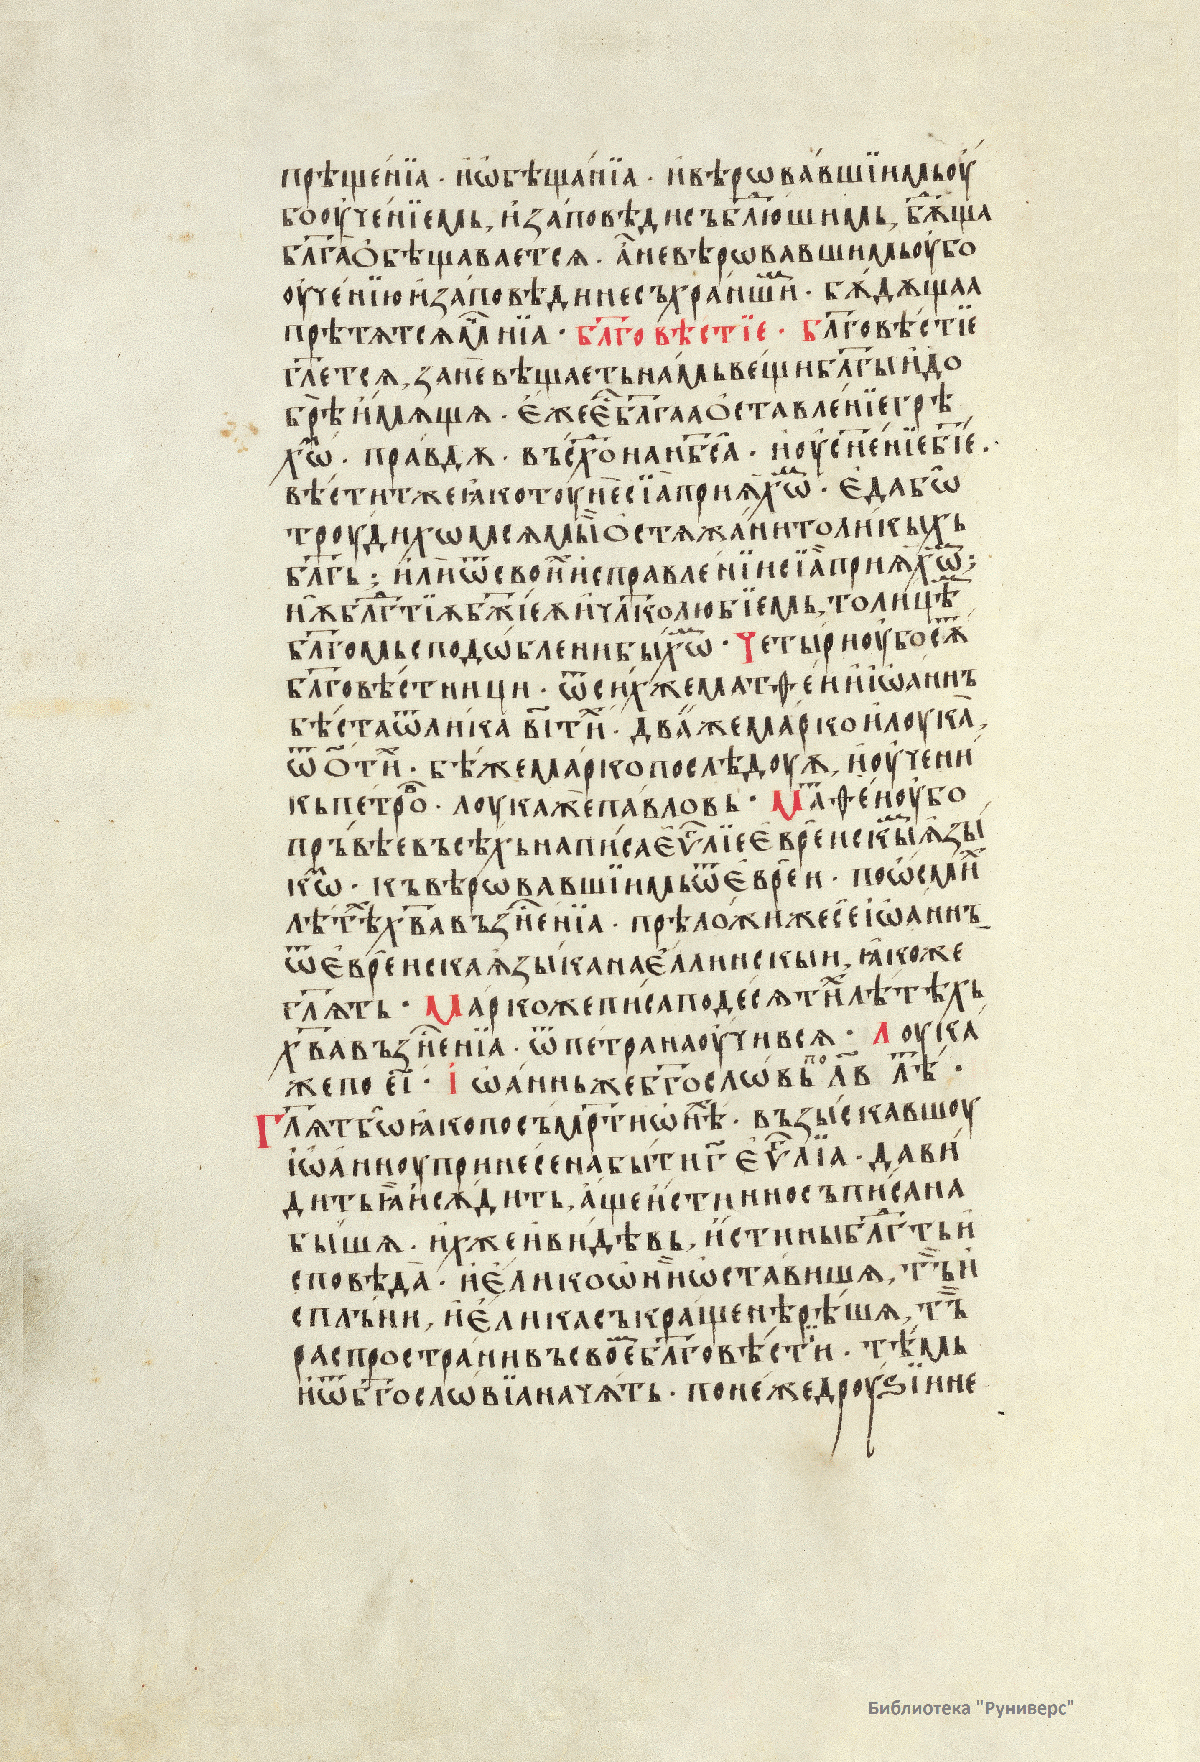 прѣщенїа · и҆ѡ҆бѣща́нїа · и҆вѣрѡва́вшїимьоу҆
бооу҆че́нїемь, и҆за́повѣди съблю́шимь, бѫ́дѫща
бл҃гаа̀ о҆бѣщаваетсѧ · а҆невѣрѡвавшимьоу҆бо
оу҆че́нїюи҆за́повѣдинесъхра́ншїи · бѫ́дѫщаа
прѣтѧтсѧмⷱ҇нїа · бл҃говѣстїе · бл҃говѣстїе
гл҃етсѧ, зане́вѣщаетьна́мьвещибл҃гыи҆до
брѣи҆мѧщѧ · е҆же́е҆бл҃гаао҆ставле́нїегрѣ
хѡⷨ · пра́вдѫ · въсхо́нан҃бса̀ · и҆оу҆сн҃е́нїебж҃їе ·
вѣститжеꙗ҆котоуне́сїа̀прїѧ́хѡⷨ · е҆дабѡ
троуди́хѡмсѧмы̀о҆стѧжа́нитоли́кыхь
бл҃гь ; и҆лиѿсвои҆́и҆справле́нїисїа̀прїѧ́хѡⷨ ;
нѫбл҃гⷣтїѫбж҃їеѫи҆чл҃колю́бїемь, толи́цѣⷨ
бл҃гомьсподѡ́блениби́хѡⷨ · Четы́риоу҆босѫ́ⷮ
бл҃говѣстници · ѿси́хжематѳе́йи҆і҆ѡа́ннъ
бѣстаѿли́ка в҃і́тиⷯ · два́жема́ркои҆лоука̀,
ѿо҃́тиⷯ · бѣ́жема́ркопослѣ́доуѫ, и҆оу҆чени́
кьпетро́ⷡ · лоука́жепа́вловь · Маⷮѳе́йоу҆бо
пръ́вѣевъсѣ́хьнаписае҆ѵⷢ҇лїее҆вре́искыⷨѧ҆зы́
кѡⷨ · къвѣ́рѡвавшїимьѿе҆вре́и · поѡ҆́сми́ⷯ
лѣ́тѣⷯхв҃авъзн҃е́нїа · прѣложи́жесїеі҆ѡа́ннъ
ѿе҆вре́искаѧ҆зы́канае҆́ллинскыи, ꙗ҆коже
гл҃ѧть · Ма́ркожеписаподесѧтиⷯлѣ́тѣхь
хв҃авъзн҃е́нїа · ѿпетранаоу҆чи́всѧ · Лоука́
жепо е҃і · І҆ѡа́нньжебг҃осло́вьпол҃в лⷮѣ ·
Гл҃ѧтбѡꙗ҆копосъмр҃тиѡ҆нⷯѣ · възы́скавшоу
і҆ѡа́нноуприне́сенабы́тиг҃ е҆ѵⷢ҇лїа · дави́
дитьꙗ҆́и҆сѫ́дить, а҆́щеи҆́стинносъпи́сана
бы́шѧ · и҆́хжеи҆ви́дѣвь, и҆́стиныбл҃гⷣтьи҆
сповѣда̀ · и҆е҆ли́коѡ҆ни́ѡ҆ста́вишѧ, тъи҆
спль́ни, и҆е҆ли́касъкра́щенѣрѣ́шѧ, тъ
распространи́въсвое́ⷨбл҃говѣ́стїи · тѣ́мь
и҆ѿбг҃осло́вїаначѧ́ть · поне́жедроуѕїине
Библиотека "Руниверс"